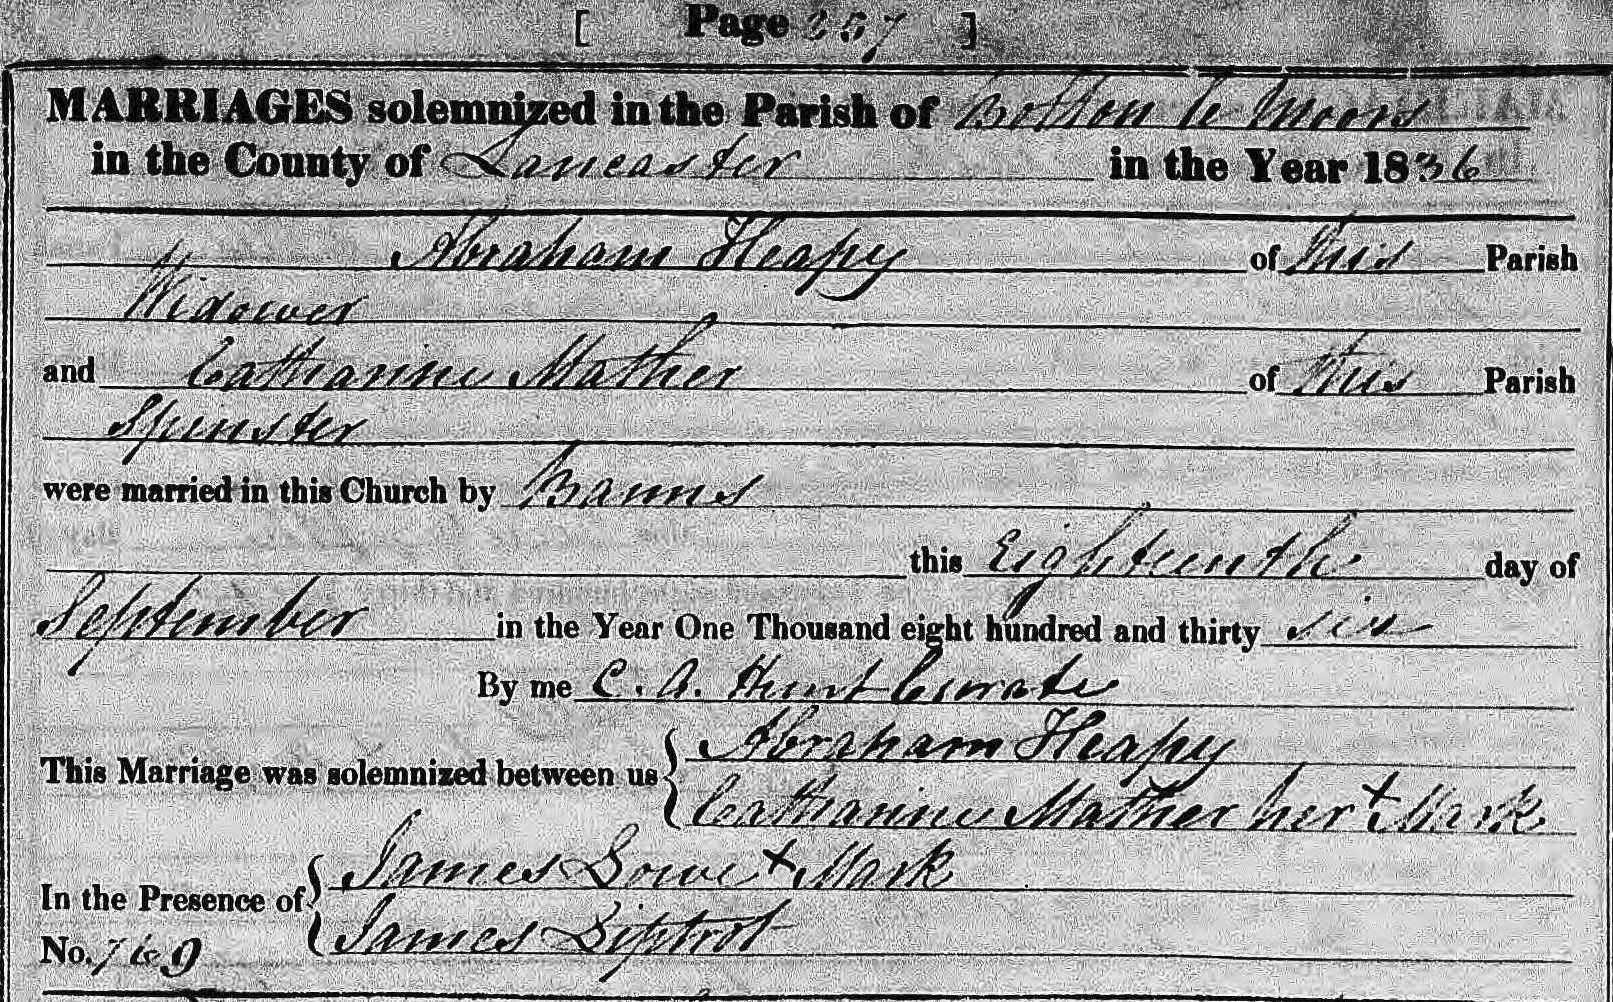 [ Page 257 ]
MARRIAGES solemnized in the Parish of Bolton le Moors
in the County of Lancaster in the Year 1836
Abraham Heapy of this Parish
Widower
and Catharine Mather of this Parish
Spinster
were married in this Church by Banns
this Eighteenth day of
September in the Year One Thousand eight hundred and thirty six
By me C. A. Hunt Curate
This Marriage was solemnized between us { Abraham Heapy
Catharine Mather her + Mark
In the Presence of { James Lowe + Mark
James Liptrot
No. 769